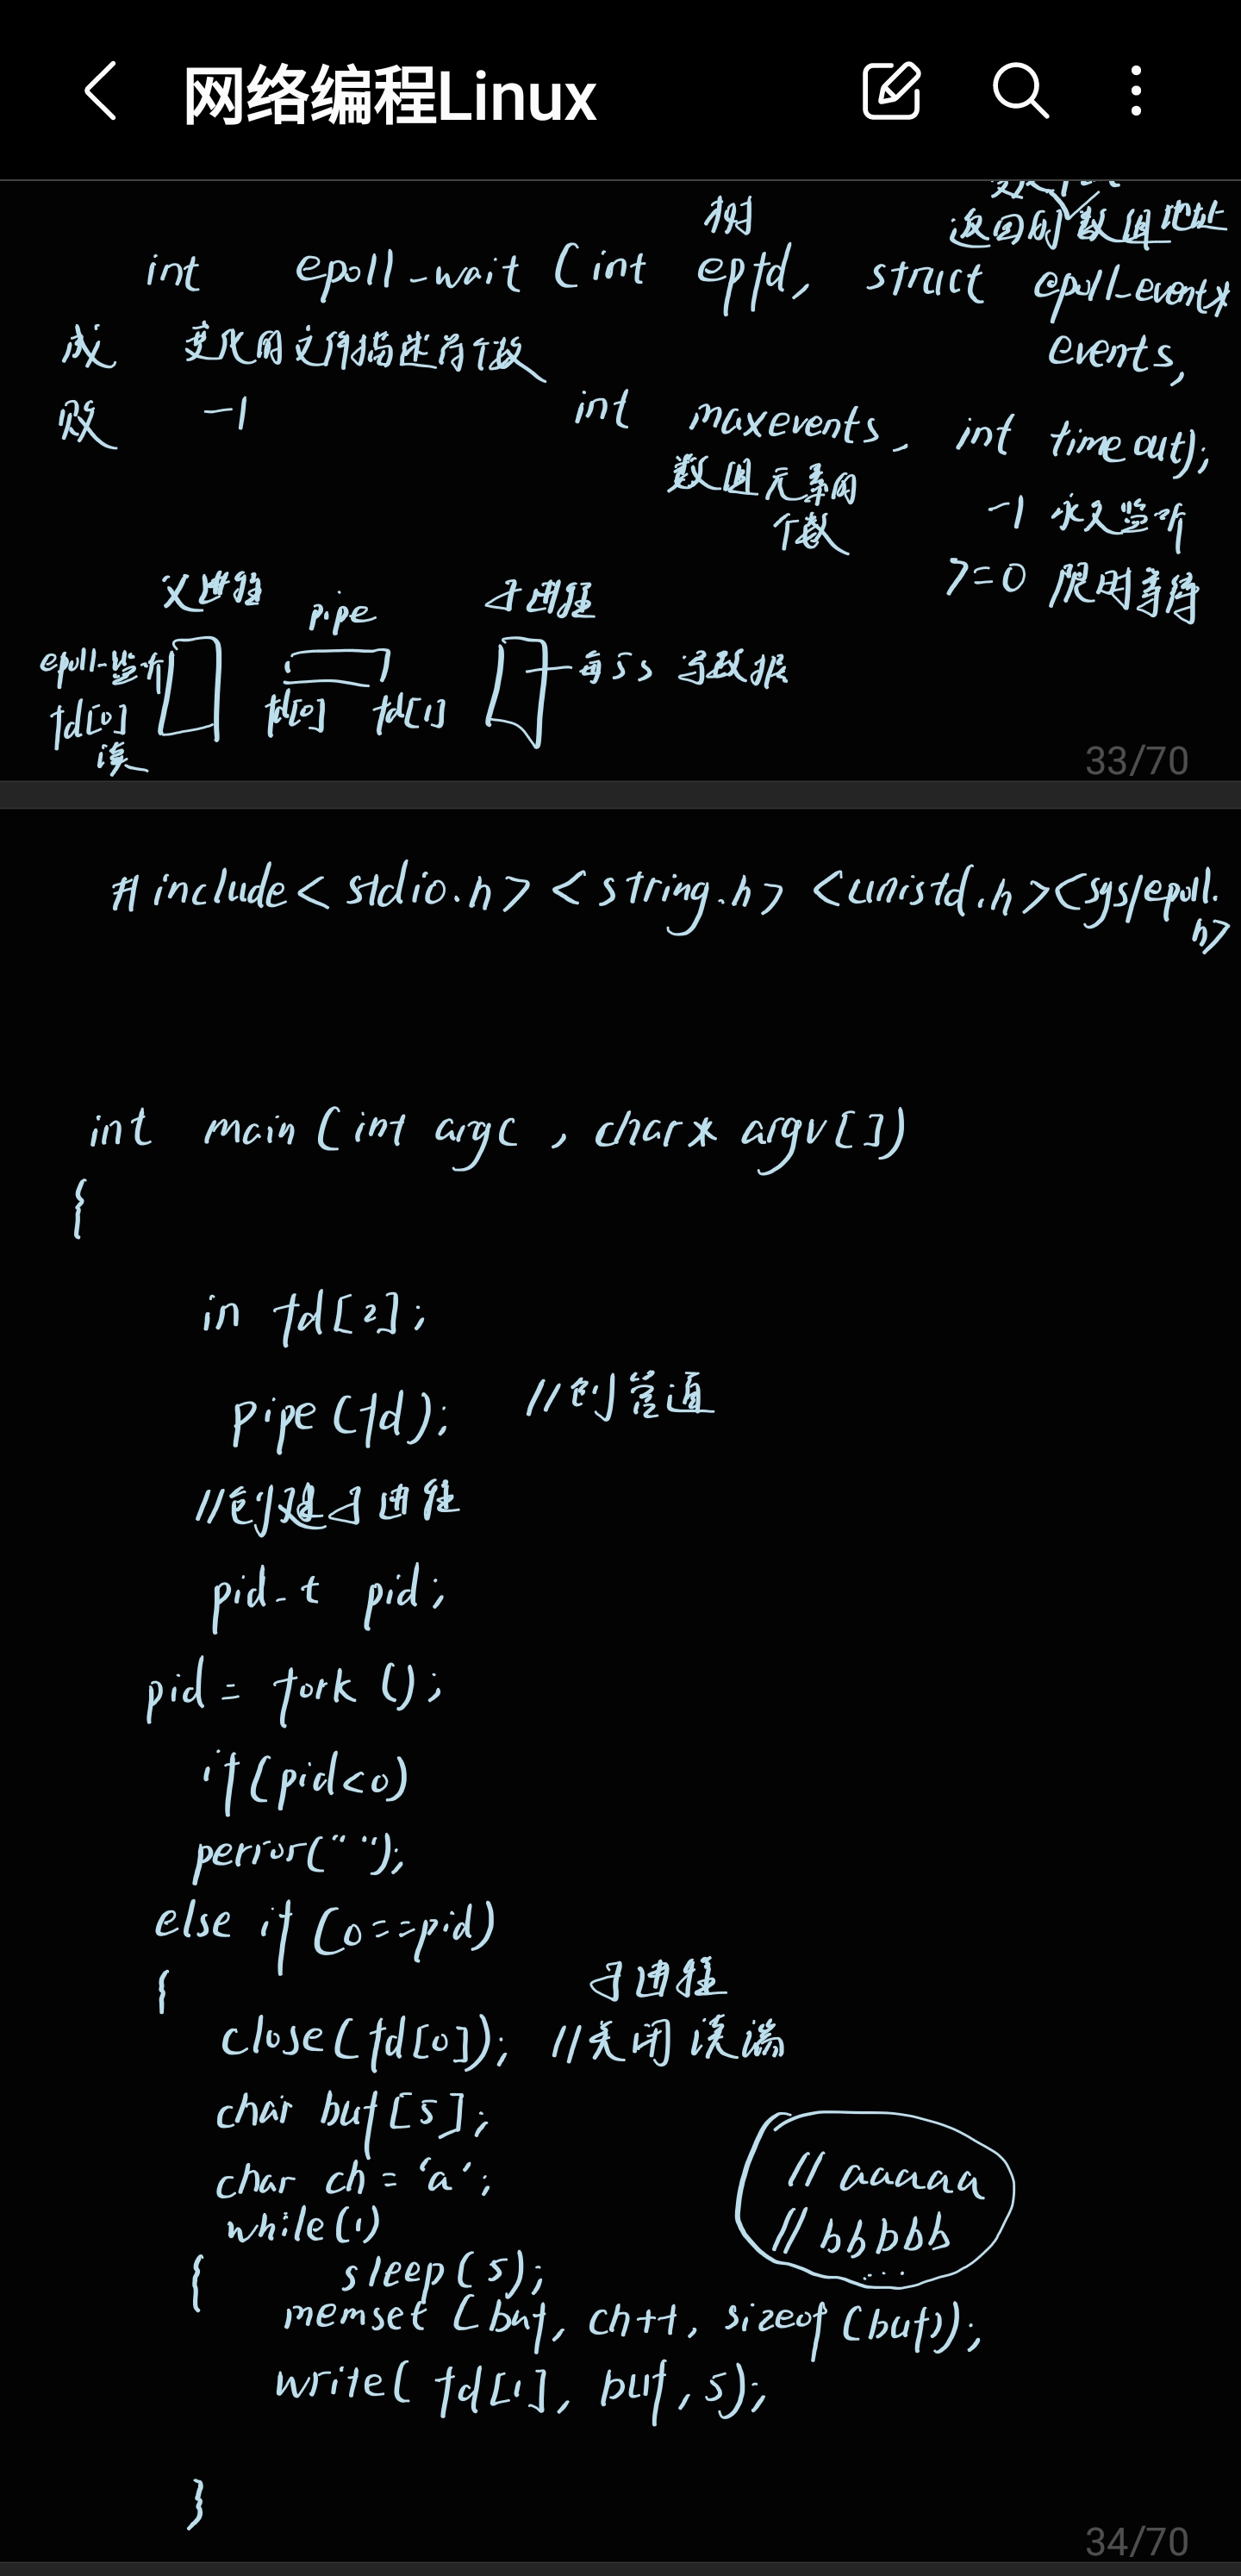 网络编程Linux
树
返回的数组地址
int epoll_wait (int epfd, struct epoll_event*
成 变化的文件描述符个数 events,
败 -1 int maxevents, int timeout);
数组元素的 -1 永久监听
个数
>=0 限时等待
父进程 pipe 子进程
epoll-监听 每5s 写数据
fd[0] fd[0] fd[1]
读
33/70
#include<stdio.h> <string.h> <unistd.h><sys/epoll.
h>
int main (int argc, char* argv[])
{
in fd[2];
pipe(fd); //创管道
//创建子进程
pid_t pid;
pid = fork ();
if(pid<0)
perror("");
else if (0==pid)
{ 子进程
close(fd[0]); //关闭读端
char buf[5];
char ch = 'a'; // aaaaa
while(1) // bbbbb
{ sleep(5); ....
memset (buf, ch++, sizeof(buf));
write( fd[1], buf, 5);
}
34/70